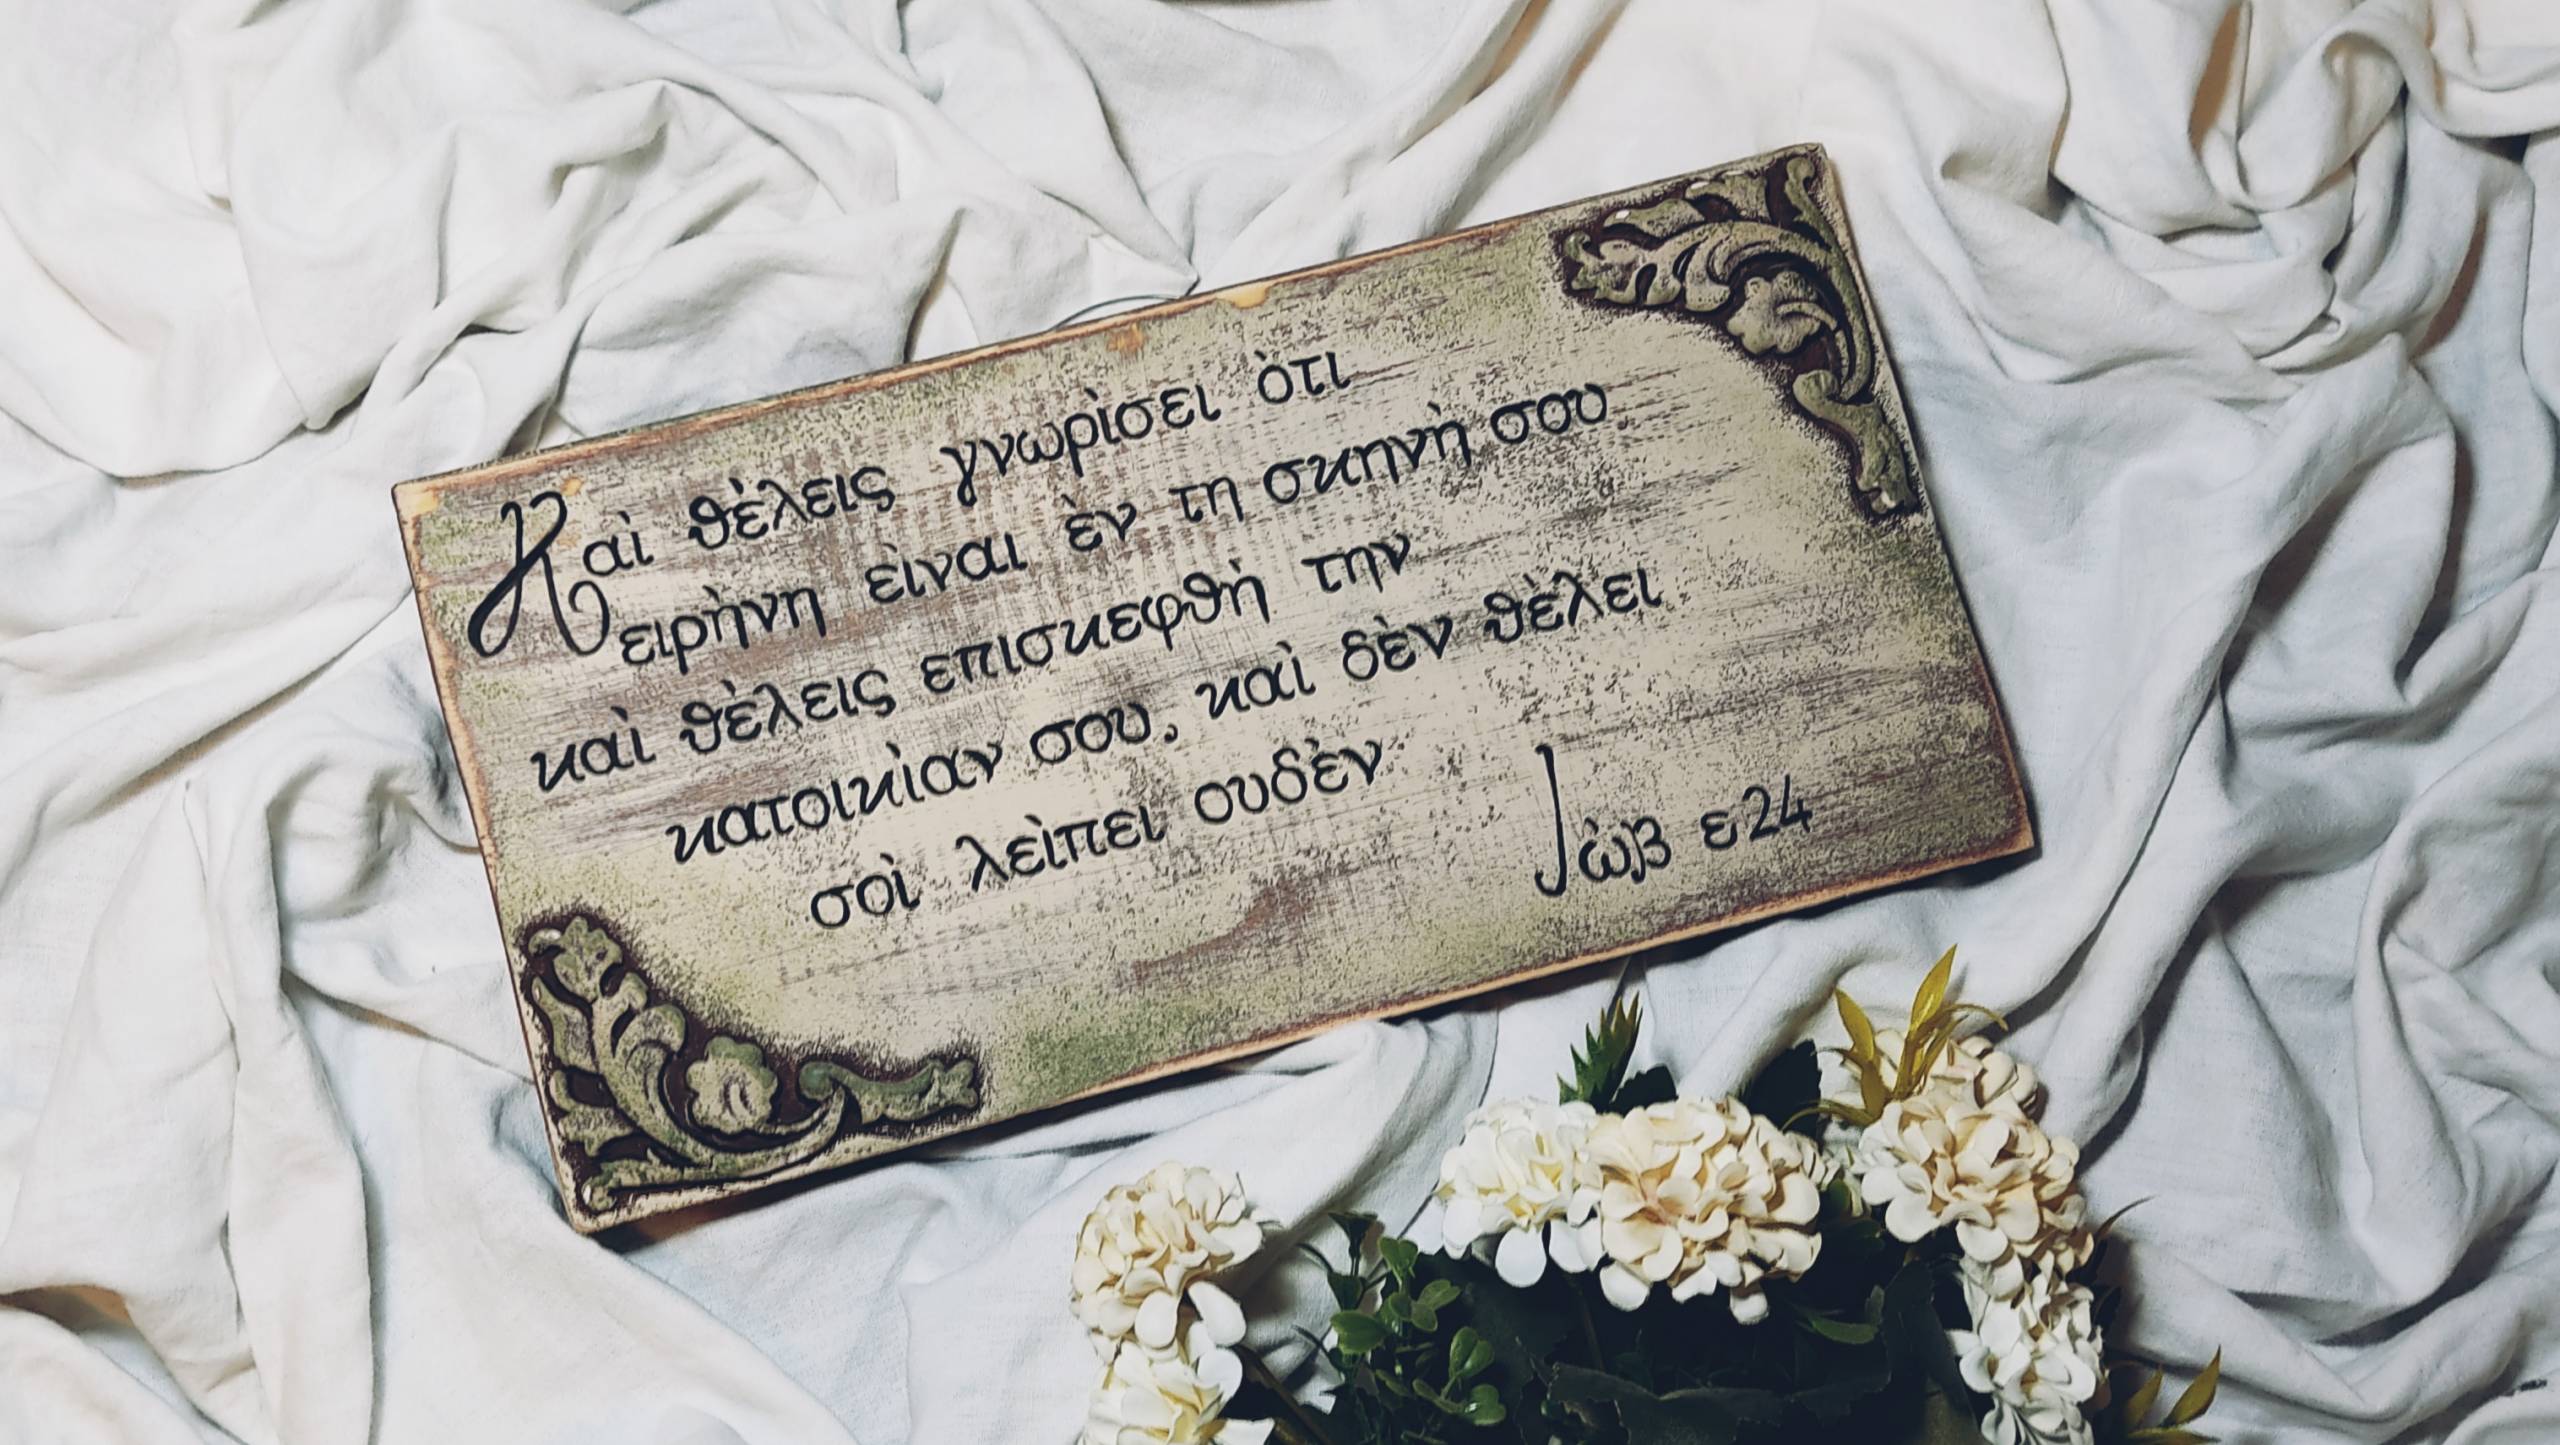 Καὶ θὲλεις γνωρὶσει ὸτι
ειρὴνη εὶναι ὲν τη σκηνὴ σου
καὶ θὲλεις επισκεφθὴ την
κατοικὶαν σου, καὶ δὲν θὲλει
σοὶ λεὶπει ουδὲν
Ιὼβ ε24